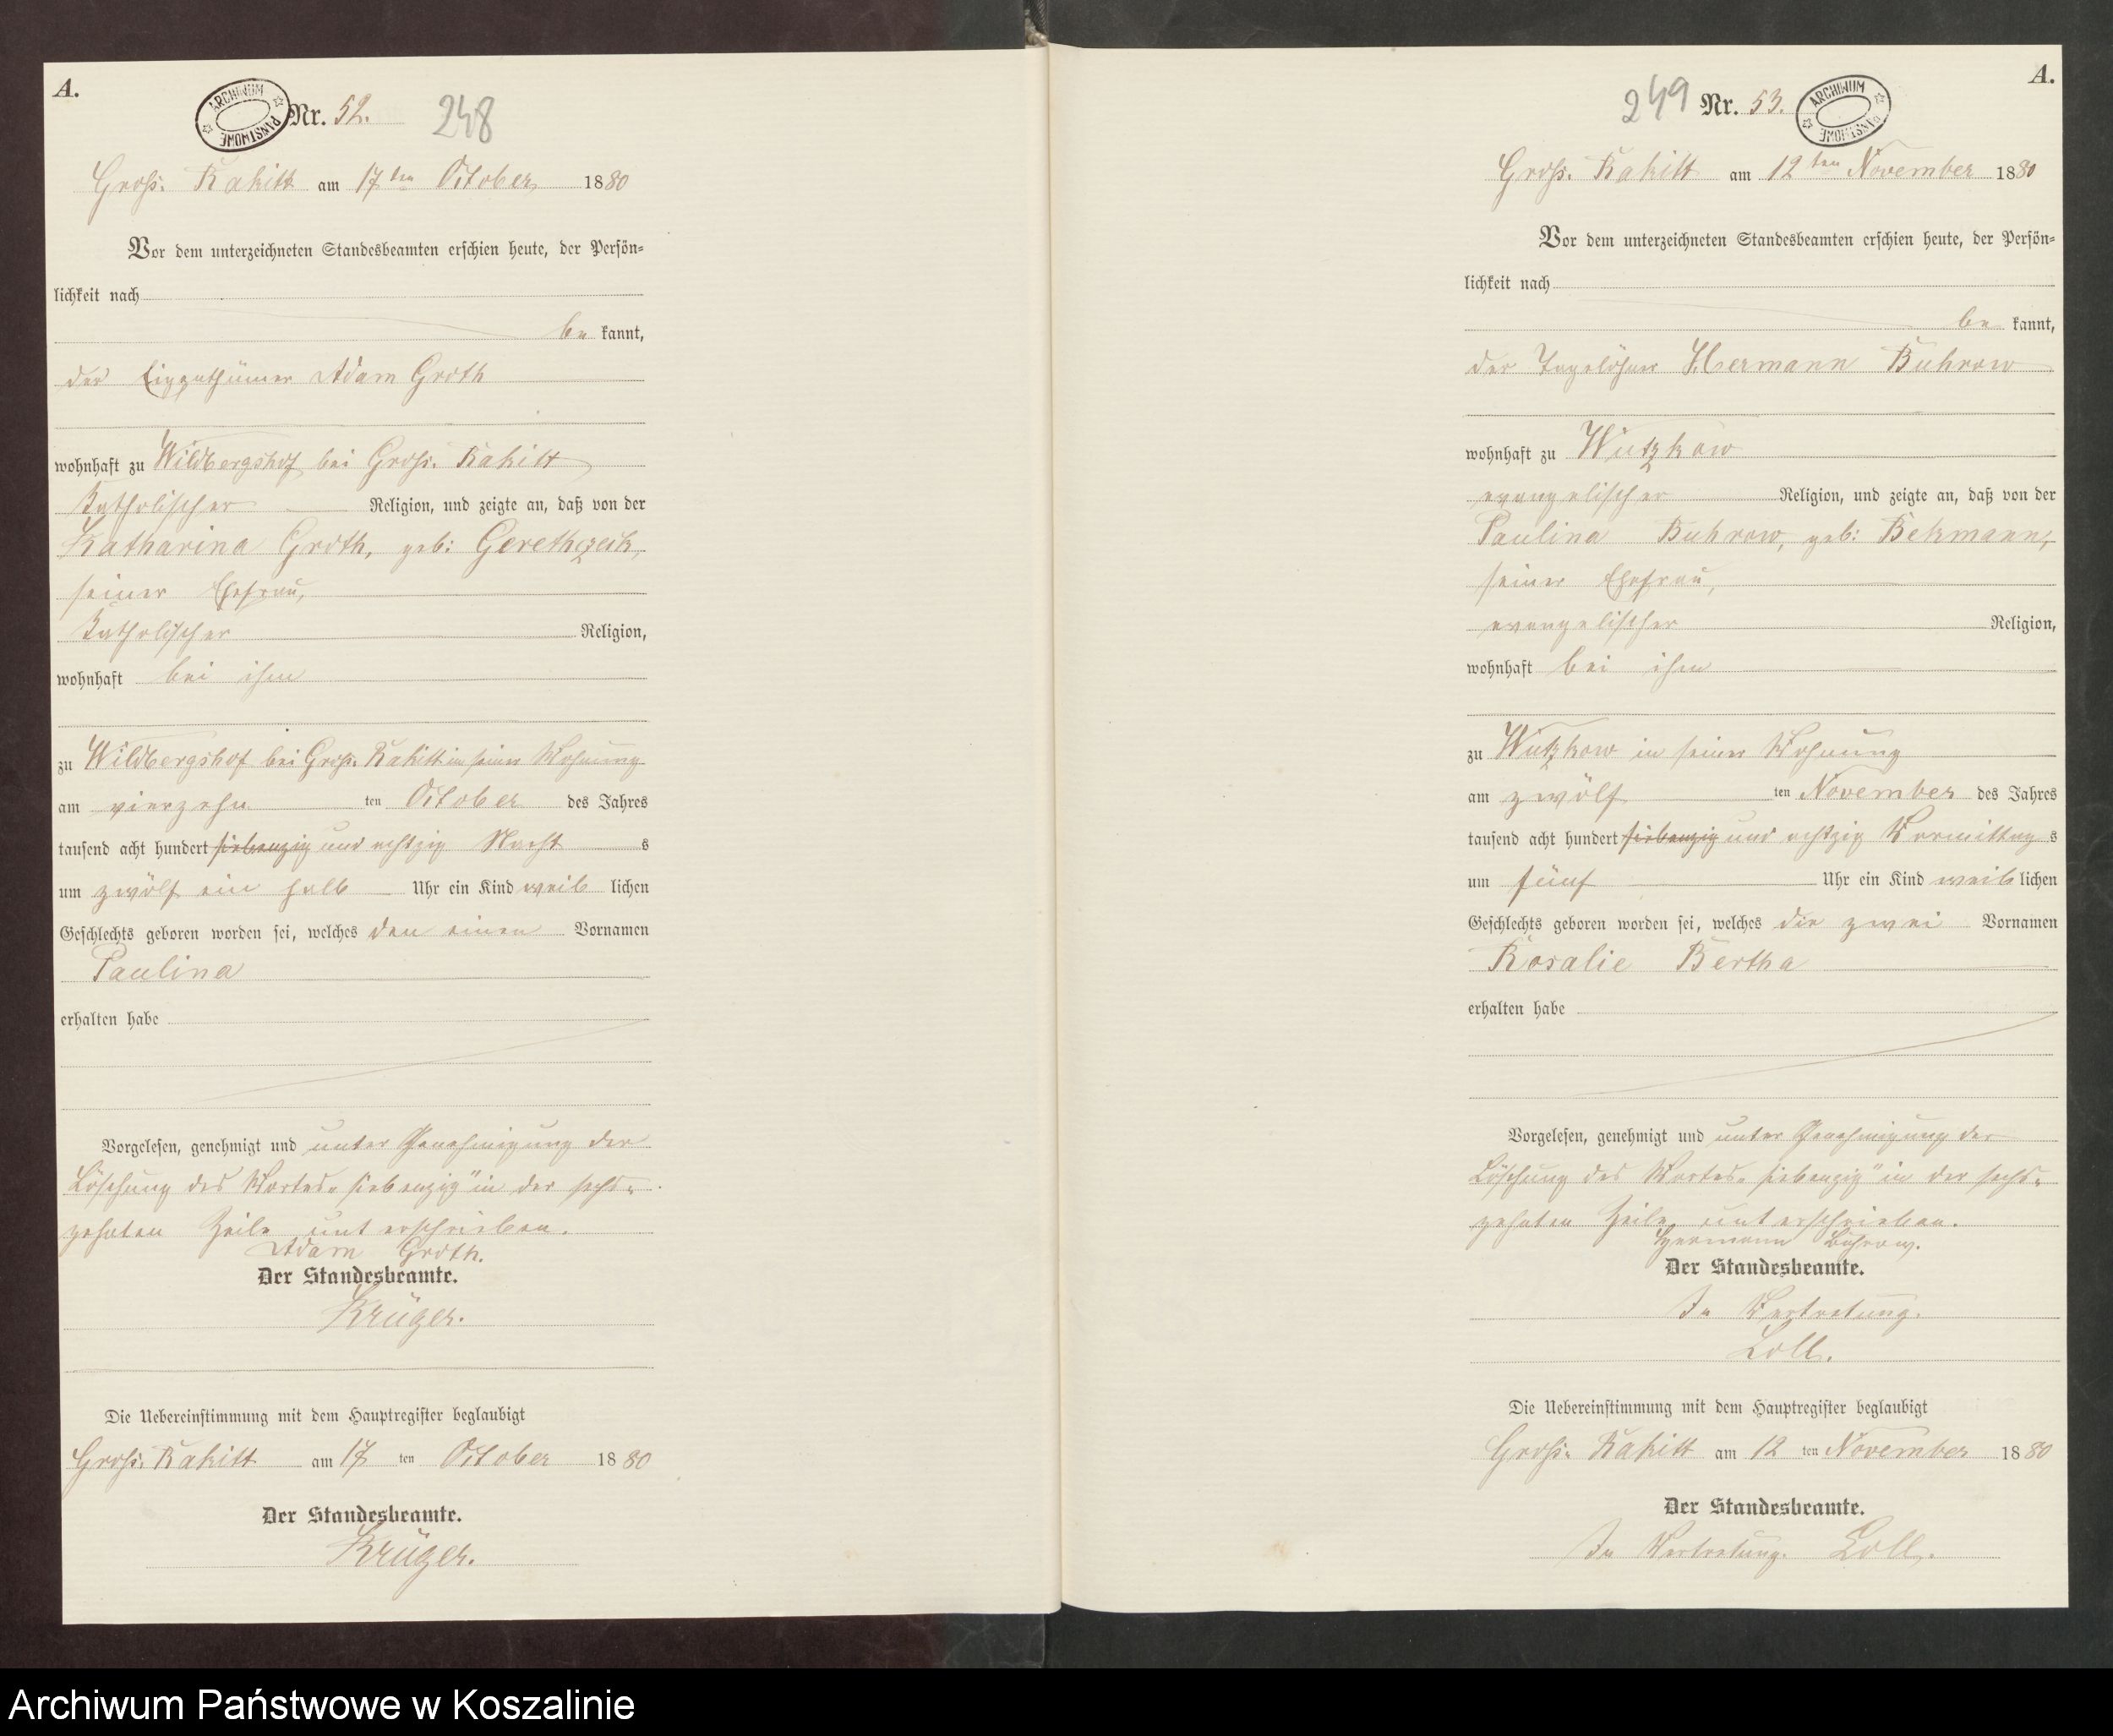 A.
ARCHIWUM PAŃSTWOWE
Nr. 52.
248
Groß. Rakitt am 17ten October 1880
Vor dem unterzeichneten Standesbeamten erschien heute, der Persön-
lichkeit nach
be kannt,
der Eigenthümer Adam Groth
wohnhaft zu Wildbergshof bei Groß. Rakitt
katholischer Religion, und zeigte an, daß von der
Katharina Groth, geb:
seiner Ehefrau,
katholischer Religion,
wohnhaft bei ihm
zu Wildbergshof bei Groß. Rakitt in seiner Wohnung
am vierzehn ten October des Jahres
tausend acht hundert siebenzig und achtzig Nacht s
um zwölf ein halb Uhr ein Kind weib lichen
Geschlechts geboren worden sei, welches den einen Vornamen
Paulina
erhalten habe
Vorgelesen, genehmigt und unter Genehmigung der
Löschung des Wortes „siebenzig" in der sechs-
zehnten Zeile unterschrieben.
Adam Groth.
Der Standesbeamte.
Krüger.
Die Uebereinstimmung mit dem Hauptregister beglaubigt
Groß. Rakitt am 17 ten October 1880
Der Standesbeamte.
Krüger.
A.
249
Nr. 53.
ARCHIWUM PAŃSTWOWE
Groß. Rakitt am 12ten November 1880
Vor dem unterzeichneten Standesbeamten erschien heute, der Persön-
lichkeit nach
be kannt,
der Tagelöhner Hermann Buhrow
wohnhaft zu Wutzkow
evangelischer Religion, und zeigte an, daß von der
Paulina Buhrow, geb: Bekmann,
seiner Ehefrau,
evangelischer Religion,
wohnhaft bei ihm
zu Wutzkow in seiner Wohnung
am zwölf ten November des Jahres
tausend acht hundert siebenzig und achtzig Vormittag s
um fünf Uhr ein Kind weib lichen
Geschlechts geboren worden sei, welches die zwei Vornamen
Rosalie Bertha
erhalten habe
Vorgelesen, genehmigt und unter Genehmigung der
Löschung des Wortes „siebenzig" in der sechs-
zehnten Zeile unterschrieben.
Hermann Buhrow.
Der Standesbeamte.
In Vertretung.
Loll.
Die Uebereinstimmung mit dem Hauptregister beglaubigt
Groß. Rakitt am 12 ten November 1880
Der Standesbeamte.
In Vertretung. Loll.
Archiwum Państwowe w Koszalinie